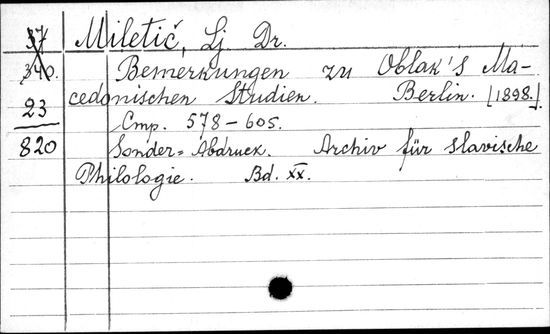 37 Miletič, Lj. Dr.
340. Bemerkungen zu Oblak's Ma-
23 cedonischen Studien. Berlin. [1898.]
Cmp. 578-605.
820 Sonder=Abdruck. Archiv für slavische
Philologie. Bd. XX.